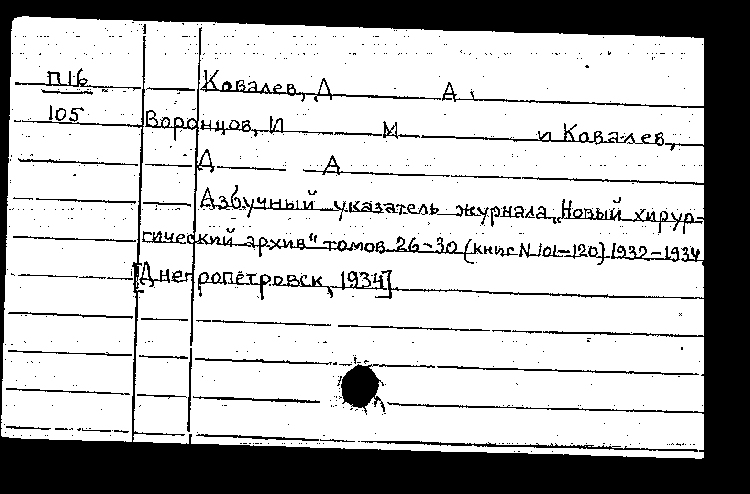 П16 Ковалев, Д А.
105 Воронцов, И М и Ковалев,
Д А
Азбучный указатель журнала „Новый хирур-
гический архив" томов 26-30 (книг N 101-120) 1932-1934.
[Днепропетровск, 1934]